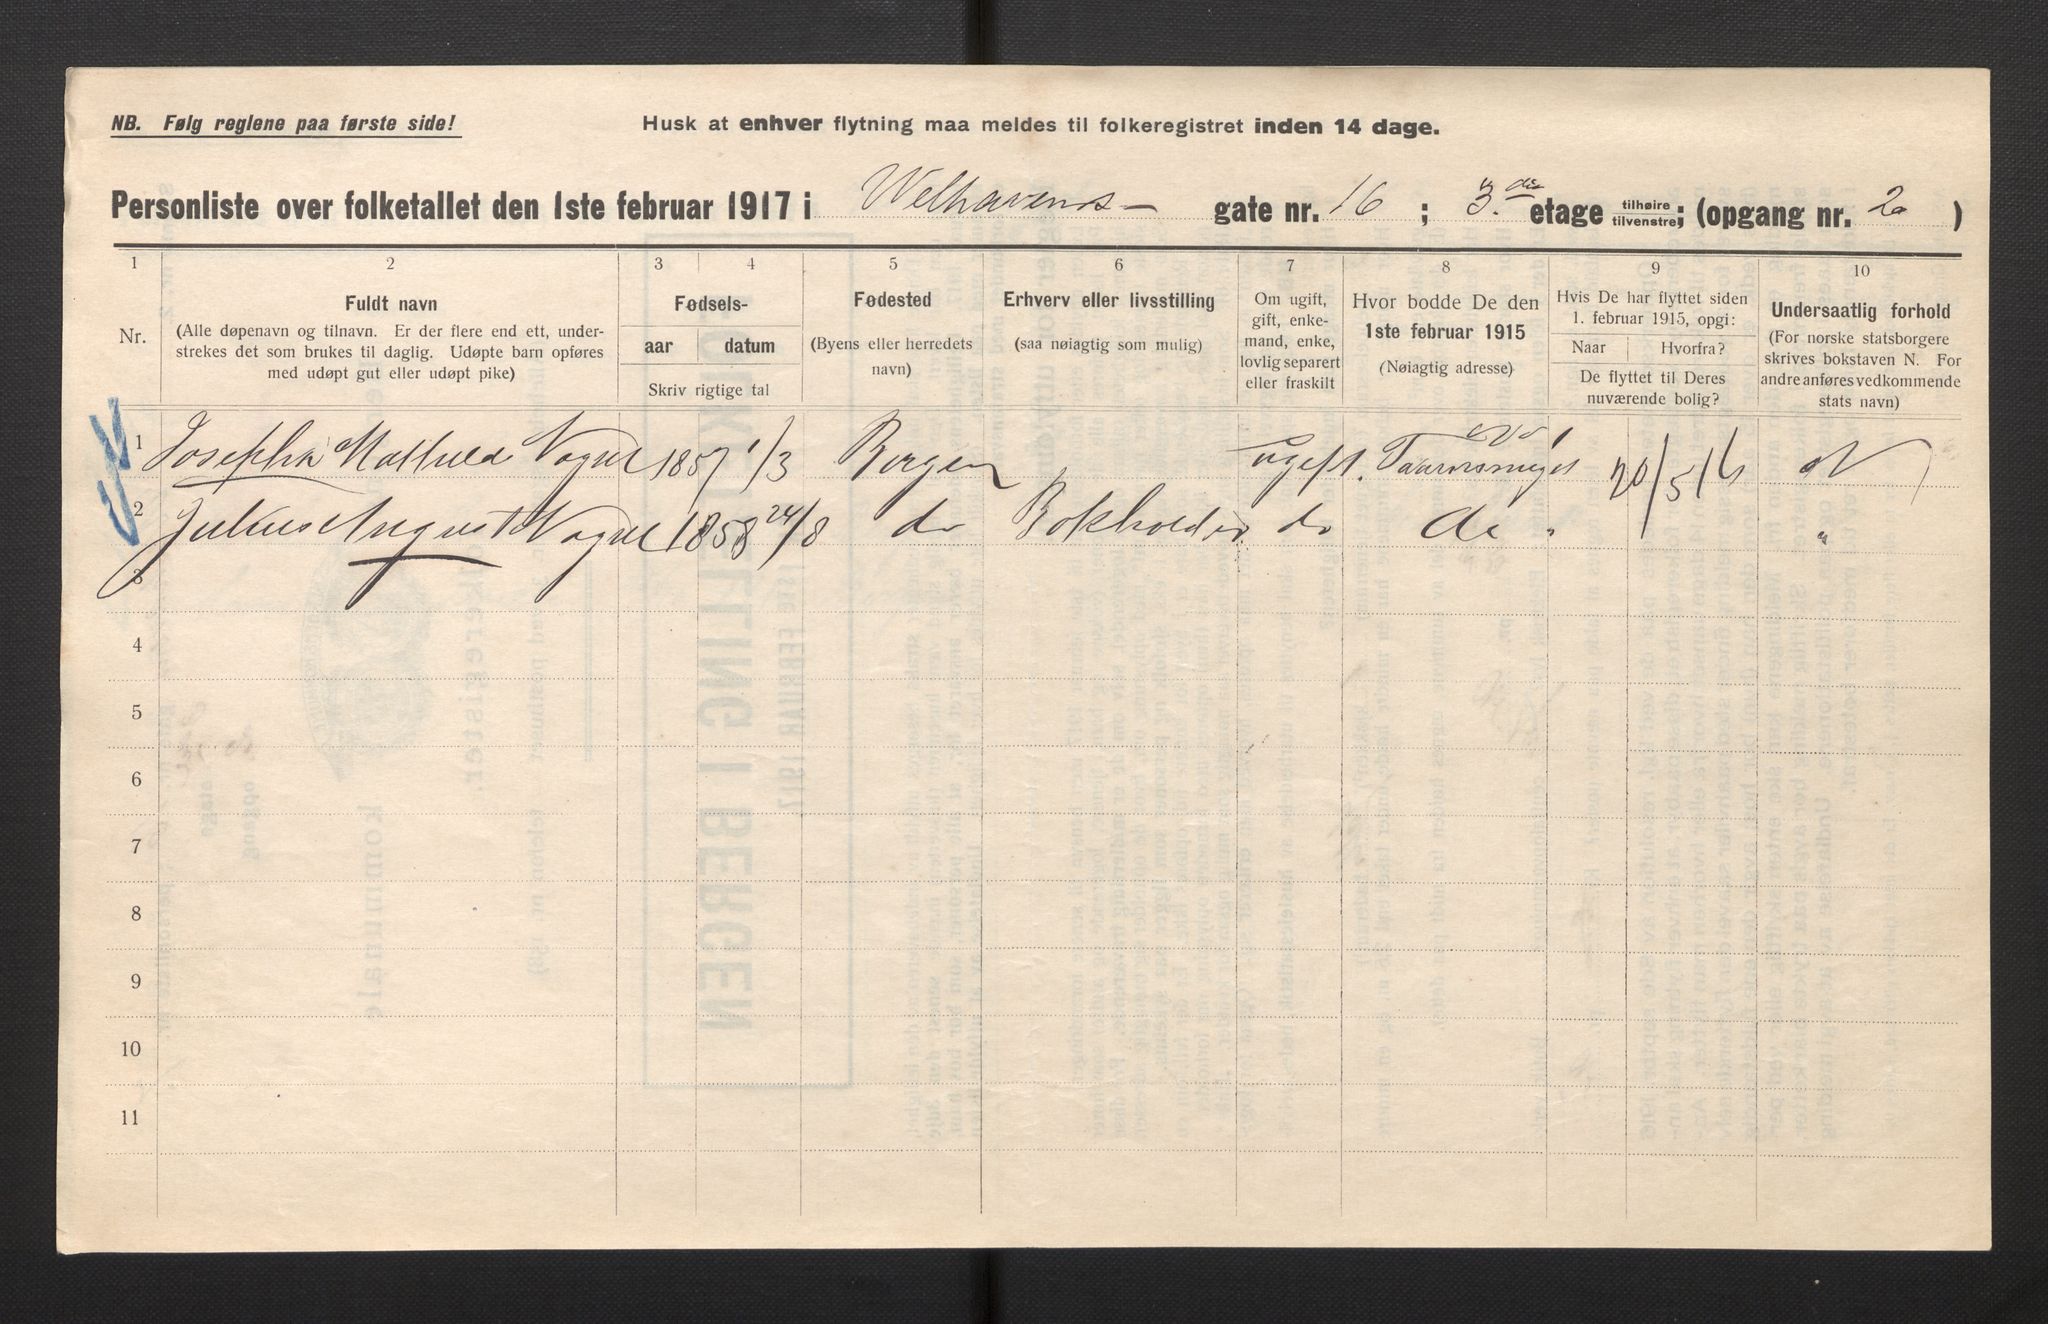 NB. Følg reglene paa første side!
Husk at enhver flytning maa meldes til folkeregistret inden 14 dage.
Personliste over folketallet den 1ste februar 1917 i Welhavens- gate nr. 16 ; 3.die etage tilhøire tilvenstre; (opgang nr. 2 )
1 2 3 4 5 6 7 8 9 10
Nr.
Fuldt navn
(Alle døpenavn og tilnavn. Er der flere end ett, under-
strekes det som brukes til daglig. Udøpte barn opføres
med udøpt gut eller udøpt pike)
Fødsels-
aar datum
Skriv rigtige tal
Fødested
(Byens eller herredets
navn)
Erhverv eller livsstilling
(saa nøiagtig som mulig)
Om ugift,
gift, enke-
mand, enke,
lovlig separert
eller fraskilt
Hvor bodde De den
1ste februar 1915
(Nøiagtig adresse)
Hvis De har flyttet siden
1. februar 1915, opgi:
Naar Hvorfra?
De flyttet til Deres
nuværende bolig?
Undersaatlig forhold
(For norske statsborgere
skrives bokstaven N. For
andre anføres vedkommende
stats navn)
1 Josepha Mathilde 1857 1/3 Bergen ugift. 20/5 16 N
2 Julius August 1858 24/8 do Bokholder do do " "
3
4
5
6
7
8
9
10
11